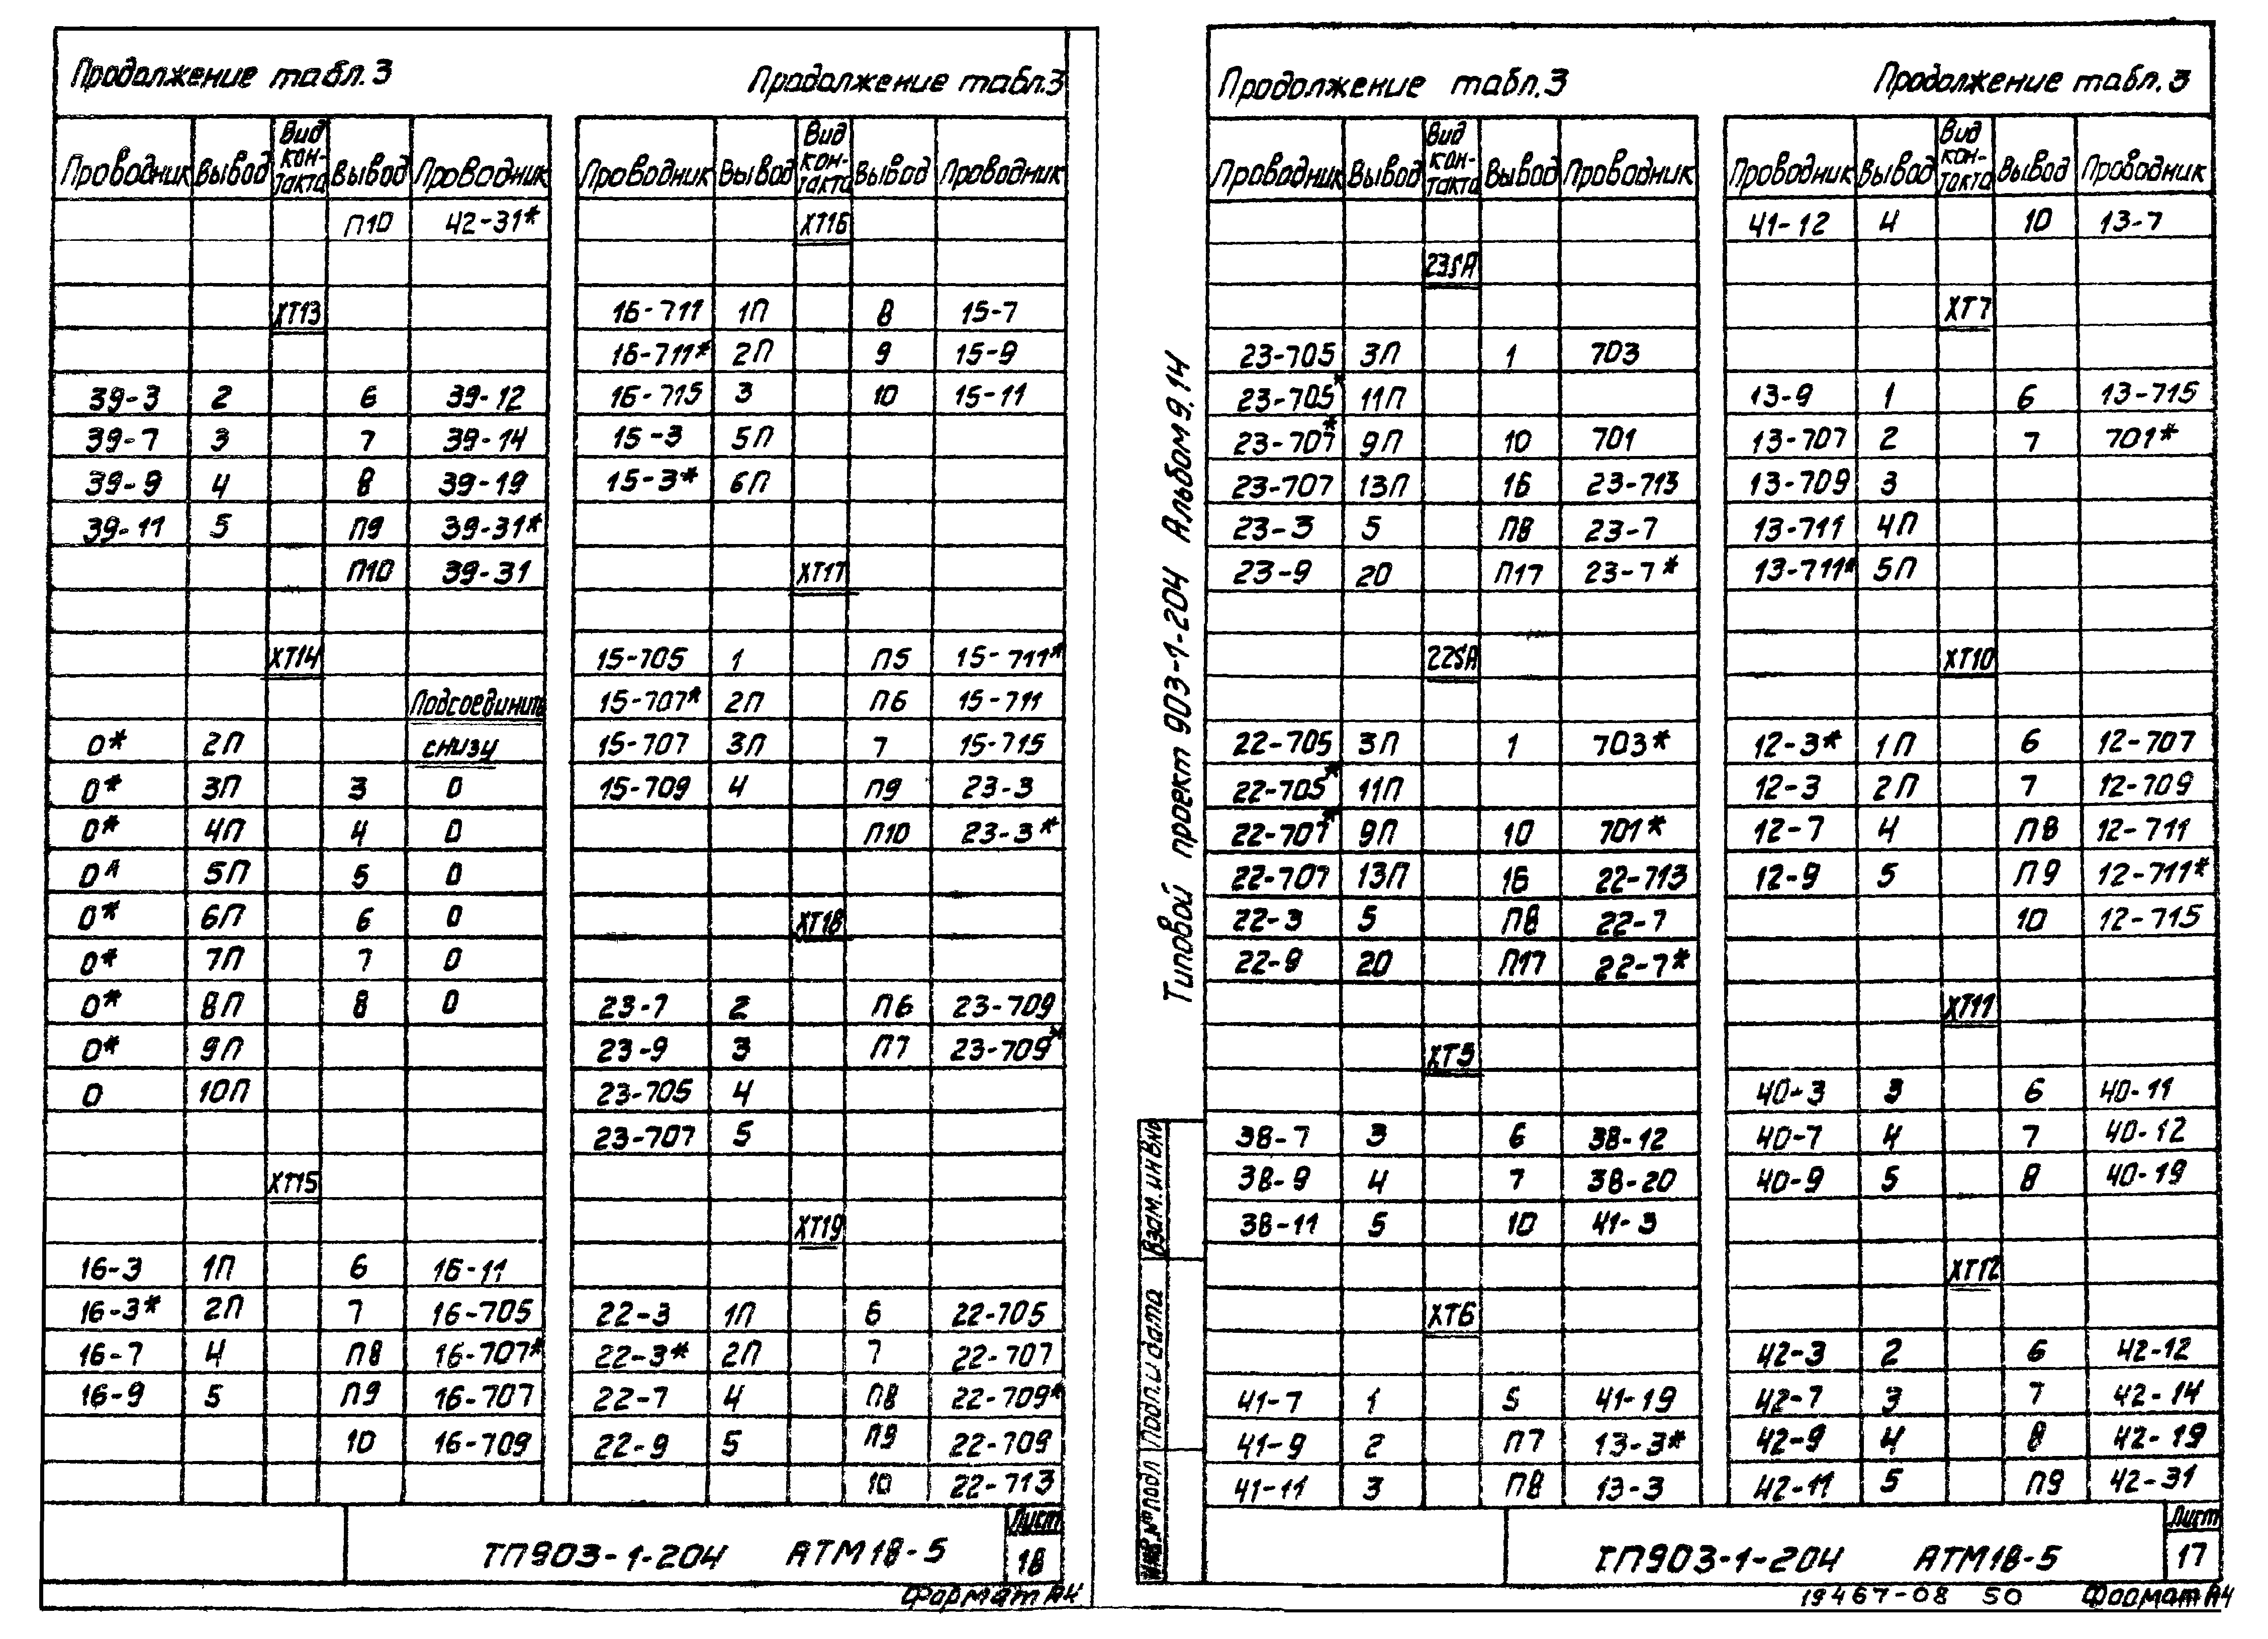 Продолжение табл.3
Проводник Вывод Вид кон-такта Вывод Проводник
П10 42-31*
ХТ13
39-3 2 6 39-12
39-7 3 7 39-14
39-9 4 8 39-19
39-11 5 П9 39-31*
П10 39-31
ХТ14
Подсоединить
0* 2П снизу
0* 3П 3 0
0* 4П 4 0
0* 5П 5 0
0* 6П 6 0
0* 7П 7 0
0* 8П 8 0
0* 9П
0 10П
ХТ15
16-3 1П 6 16-11
16-3* 2П 7 16-705
16-7 4 П8 16-707*
16-9 5 П9 16-707
10 16-709
Продолжение табл.3
Проводник Вывод Вид кон-такта Вывод Проводник
ХТ16
16-711 1П 8 15-7
16-711* 2П 9 15-9
16-715 3 10 15-11
15-3 5П
15-3* 6П
ХТ17
15-705 1 П5 15-711*
15-707* 2П П6 15-711
15-707 3П 7 15-715
15-709 4 П9 23-3
П10 23-3*
ХТ18
23-7 2 П6 23-709
23-9 3 П7 23-709*
23-705 4
23-707 5
ХТ19
22-3 1П 6 22-705
22-3* 2П 7 22-707
22-7 4 П8 22-709*
22-9 5 П9 22-709
10 22-713
ТП903-1-204 АТМ18-5
Лист
18
Формат А4
Типовой проект 903-1-204 Альбом 9.14
Взам.инв№
Подп.и дата
Инв.№подл
Продолжение табл.3
Проводник Вывод Вид кон-такта Вывод Проводник
23SA
23-705 3П 1 703
23-705* 11П
23-707* 9П 10 701
23-707 13П 16 23-713
23-3 5 П8 23-7
23-9 20 П17 23-7*
22SA
22-705 3П 1 703*
22-705* 11П
22-707* 9П 10 701*
22-707 13П 16 22-713
22-3 5 П8 22-7
22-9 20 П17 22-7*
ХТ5
38-7 3 6 38-12
38-9 4 7 38-20
38-11 5 10 41-3
ХТ6
41-7 1 5 41-19
41-9 2 П7 13-3*
41-11 3 П8 13-3
Продолжение табл.3
Проводник Вывод Вид кон-такта Вывод Проводник
41-12 4 10 13-7
ХТ7
13-9 1 6 13-715
13-707 2 7 701*
13-709 3
13-711 4П
13-711* 5П
ХТ10
12-3* 1П 6 12-707
12-3 2П 7 12-709
12-7 4 П8 12-711
12-9 5 П9 12-711*
10 12-715
ХТ11
40-3 3 6 40-11
40-7 4 7 40-12
40-9 5 8 40-19
ХТ12
42-3 2 6 42-12
42-7 3 7 42-14
42-9 4 8 42-19
42-11 5 П9 42-31
ТП903-1-204 АТМ18-5
Лист
17
19467-08 50 Формат А4